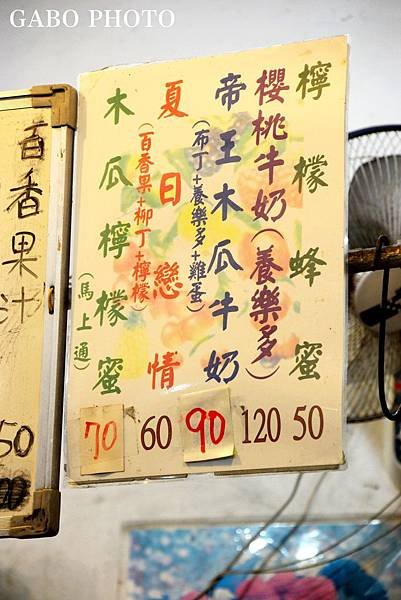 GABO PHOTO
檸檬蜂蜜 50
櫻桃牛奶(養樂多) 120
帝王木瓜牛奶 90
(布丁+養樂多+雞蛋)
夏日戀情 60
(百香果+柳丁+檸檬)
木瓜檸檬蜜 70
(馬上通)
百香果汁
50